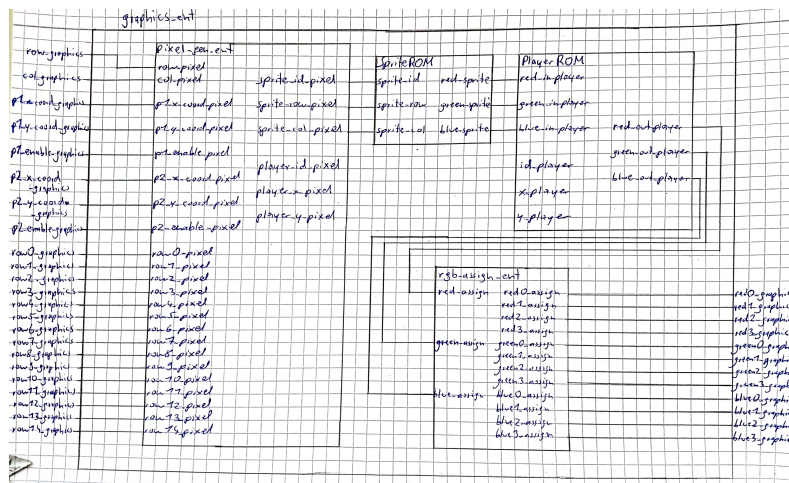 graphics_ent
row_graphics
col_graphics
p1_x_coord_graphics
p1_y_coord_graphics
p1_enable_graphics
p2_x_coord
_graphics
p2_y_coord
_graphics
p2_enable_graphics
row0_graphics
row1_graphics
row2_graphics
row3_graphics
row4_graphics
row5_graphics
row6_graphics
row7_graphics
row8_graphics
row9_graphics
row10_graphics
row11_graphics
row12_graphics
row13_graphics
row14_graphics
pixel_gen_ent
row_pixel
col_pixel
p1_x_coord_pixel
p1_y_coord_pixel
p1_enable_pixel
p2_x_coord_pixel
p2_y_coord_pixel
p2_enable_pixel
row0_pixel
row1_pixel
row2_pixel
row3_pixel
row4_pixel
row5_pixel
row6_pixel
row7_pixel
row8_pixel
row9_pixel
row10_pixel
row11_pixel
row12_pixel
row13_pixel
row14_pixel
sprite_id_pixel
sprite_row_pixel
sprite_col_pixel
player_id_pixel
player_x_pixel
player_y_pixel
SpriteROM
sprite_id red_sprite
sprite_row green_sprite
sprite_col blue_sprite
PlayerROM
red_in_player
green_in_player
blue_in_player
id_player
x_player
y_player
red_out_player
green_out_player
blue_out_player
rgb_assign_ent
red_assign red0_assign
red1_assign
red2_assign
red3_assign
green_assign green0_assign
green1_assign
green2_assign
green3_assign
blue_assign blue0_assign
blue1_assign
blue2_assign
blue3_assign
red0_graphi
red1_graph
red2_graph
red3_graphic
green0_graph
green1_graph
green2_graph
green3_graph
blue0_graphi
blue1_graph
blue2_graph
blue3_graphi